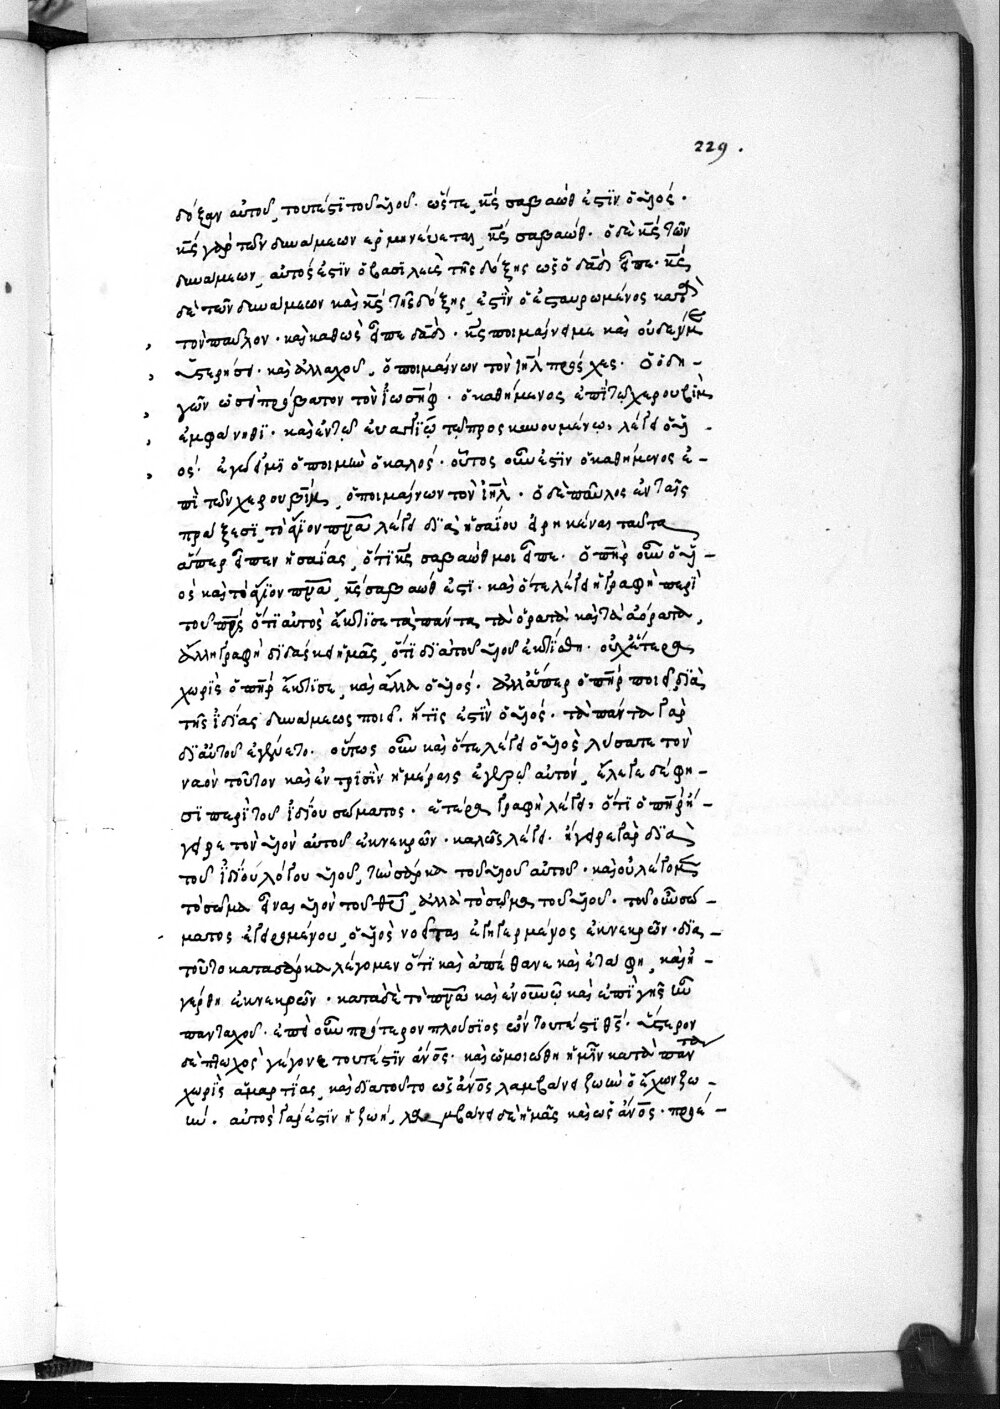 229.
δόξαν αὐτοῦ, τουτέστι τοῦ υἱοῦ. ὥστε κς σαβαώθ ἐστιν ὁ υἱός.
κς γὰρ τῶν δυνάμεων ἑρμηνεύεται κς σαβαώθ. ὁ δὲ κς τῶν
δυνάμεων, αὐτός ἐστιν ὁ βασιλεὺς τῆς δόξης ὡς ὁ δαδ εἶπε. κς
δὲ τῶν δυνάμεων καὶ κς τῆς δόξης, ἐστὶν ὁ ἐσταυρωμένος κατὰ
τὸν παῦλον. καὶ καθὼς εἶπε δαδ. κς ποιμαίνει με καὶ οὐδέν με
ὑστερήσει. καὶ ἀλλαχοῦ, ὁ ποιμαίνων τὸν ιηλ πρόσχες. ὁ ὁδη-
γῶν ὡσεὶ πρόβατον τὸν ἰωσήφ. ὁ καθήμενος ἐπὶ τῶν χερουβὶμ
ἐμφάνηθι. καὶ ἐν τῷ εὐαγγελίῳ τῷ προσκυνουμένῳ, λέγει ὁ υἱ-
ός. ἐγώ εἰμι ὁ ποιμὴν ὁ καλός. οὗτος οὖν ἐστιν ὁ καθήμενος ἐ-
πὶ τῶν χερουβὶμ, ὁ ποιμαίνων τὸν ιηλ. ὁ δὲ παῦλος ἐν ταῖς
πράξεσι, τὸ ἅγιον πνα λέγει διὰ ἡσαΐου εἰρηκέναι ταῦτα
ἅπερ εἶπεν ἡσαΐας, ὅτι κς σαβαώθ μοι εἶπε. ὁ πηρ οὖν ὁ υἱ-
ὸς καὶ τὸ ἅγιον πνα, κς σαβαώθ ἐστι. καὶ ὅτε λέγει ἡ γραφὴ περὶ
τοῦ πρς ὅτι αὐτὸς ἔκτισε τὰ πάντα τὰ ὁρατὰ καὶ τὰ ἀόρατα,
ἄλλη γραφὴ διδάσκει ἡμᾶς, ὅτι διὰ τοῦ υἱοῦ ἐκτίσθη. οὐχ ἕτερα
χωρὶς ὁ πηρ ἔκτισε, καὶ ἄλλα ὁ υἱός. ἀλλ' ἅπερ ὁ πηρ ποιεῖ διὰ
τῆς ἰδίας δυνάμεως ποιεῖ. ἥτις ἐστὶν ὁ υἱός. τὰ πάντα γὰρ
δι' αὐτοῦ ἐγένετο. οὕτως οὖν καὶ ὅτε λέγει ὁ υἱὸς λύσατε τὸν
ναὸν τοῦτον καὶ ἐν τρισὶν ἡμέραις ἐγερῶ αὐτόν, ἔλεγε δέ φη-
σι περὶ τοῦ ἰδίου σώματος. ἑτέρα γραφὴ λέγει, ὅτι ὁ πηρ ἤ-
γειρε τὸν υἱὸν αὐτοῦ ἐκ νεκρῶν. καλῶς λέγει. ἤγειρε γὰρ διὰ
τοῦ ἰδίου λόγου υἱοῦ, τὴν σάρκα τοῦ υἱοῦ αὐτοῦ. καὶ οὐ λέγομεν
τὸ σῶμα εἶναι υἱὸν τοῦ θυ, ἀλλὰ τὸ σῶμα τοῦ υἱοῦ. τοῦ οὖν σώ-
ματος ἐγειρομένου, ὁ υἱὸς νοεῖται ἐγηγερμένος ἐκ νεκρῶν. διὰ
τοῦτο κατὰ σάρκα λέγομεν ὅτι καὶ ἀπέθανε καὶ ἐτάφη, καὶ ἠ-
γέρθη ἐκ νεκρῶν. κατὰ δὲ τὸ πνα καὶ ἐν οὐνῷ καὶ ἐπὶ γῆς ἦν
πανταχοῦ. ἐπεὶ οὖν πρότερον πλούσιος ὢν τουτέστι θς. ὕστερον
δὲ πτωχὸς γέγονε τουτέστιν ἄνος. καὶ ὡμοιώθη ἡμῖν κατὰ πάντα
χωρὶς ἁμαρτίας, καὶ διὰ τοῦτο ὡς ἄνος λαμβάνει ζωὴν ὁ ἔχων ζω-
ήν. αὐτὸς γάρ ἐστιν ἡ ζωή, λαμβάνει δὲ ἡμᾶς καὶ ὡς ἄνος. πρσέ-